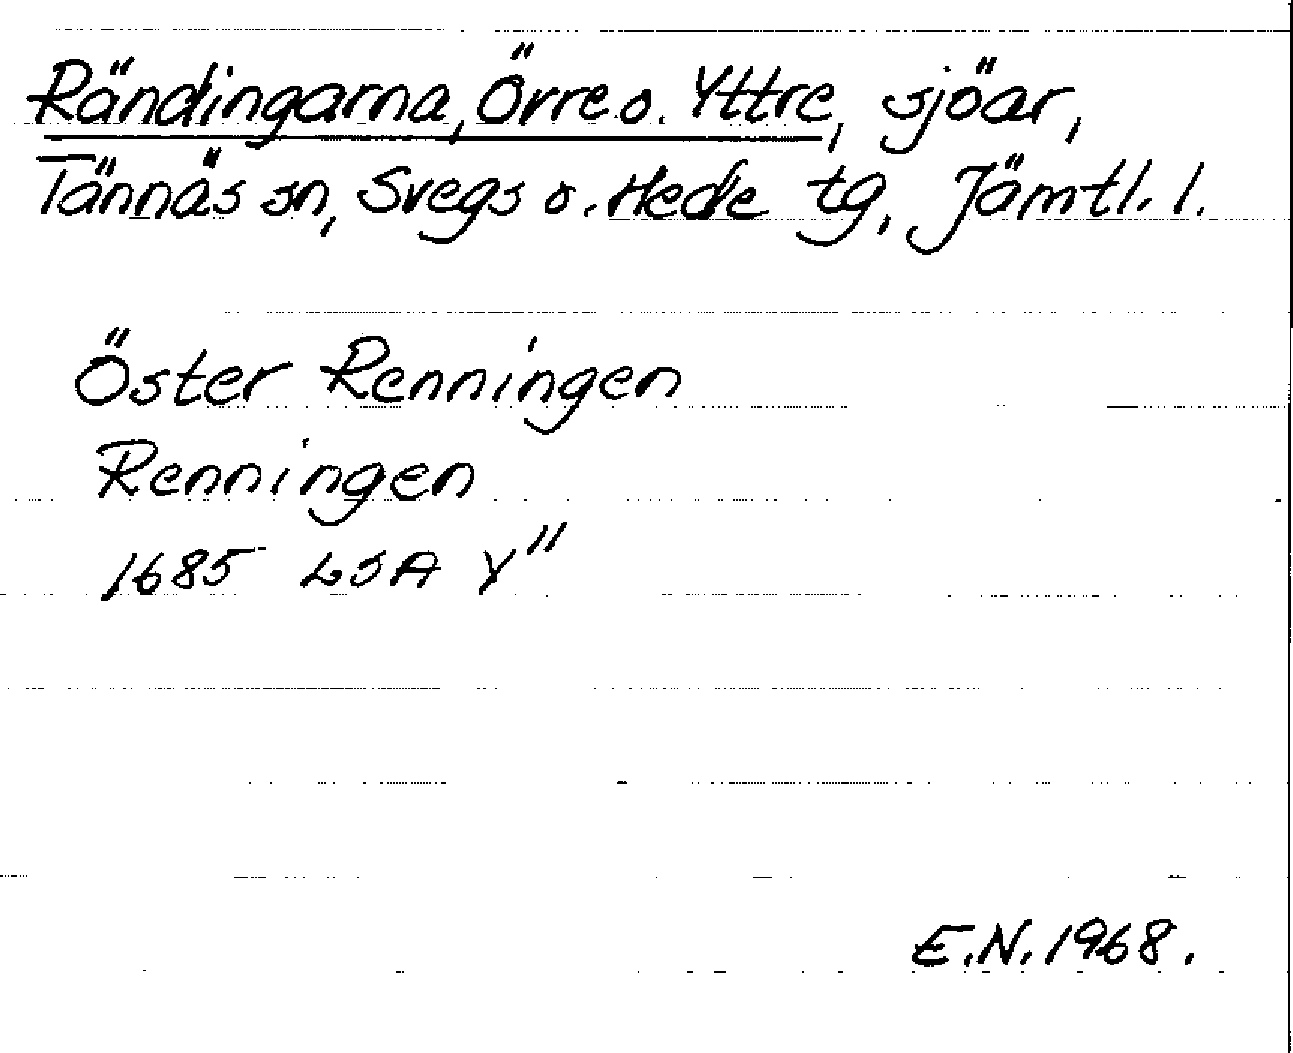 Rändingarna, Övre o. Yttre, sjöar,
Tännäs sn, Svegs o. Hede tg, Jämtl. l.
Öster Renningen
Renningen
1685 LSA Y"
E.N. 1968.